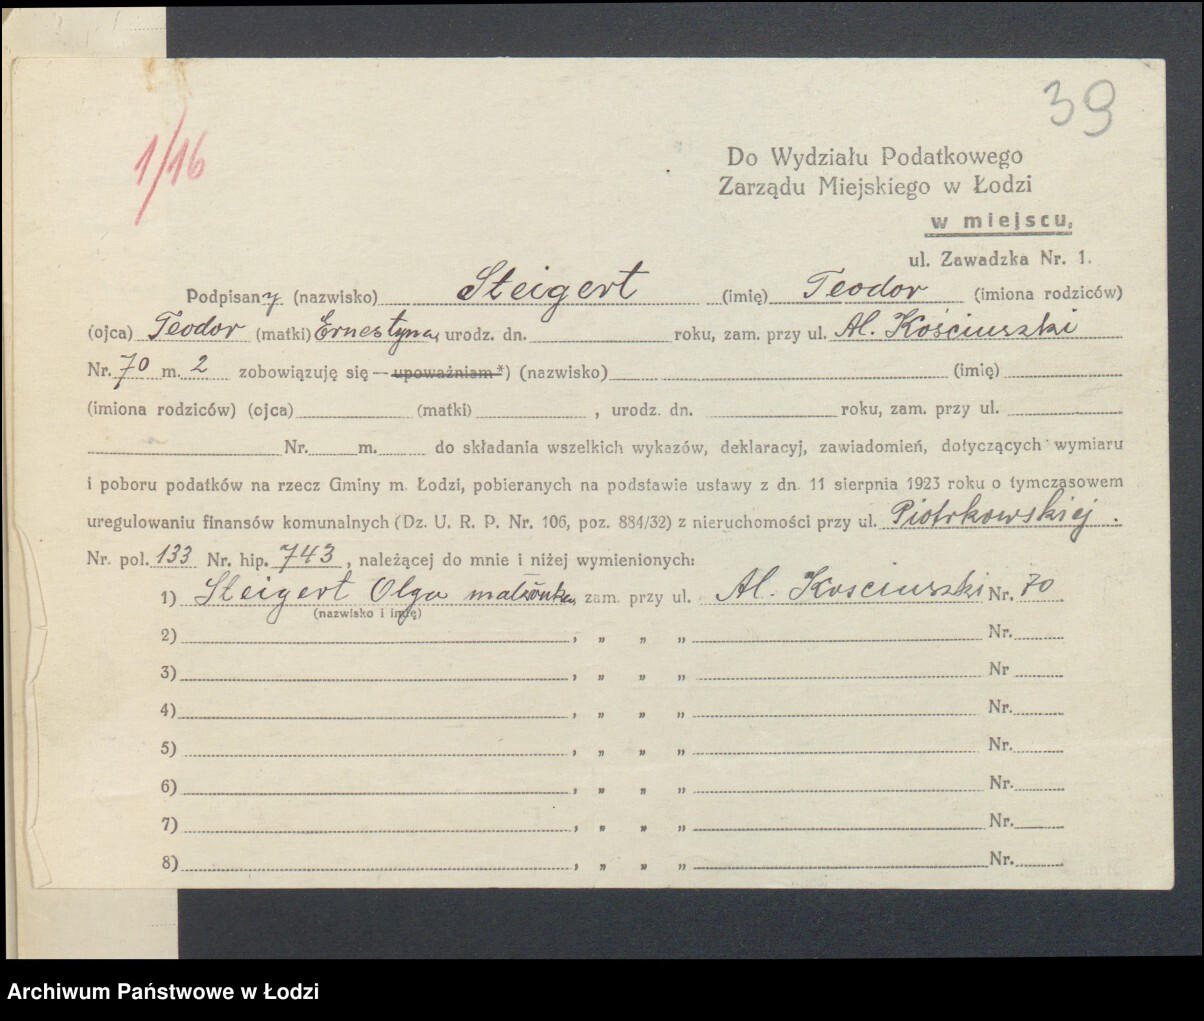 39
1/16
Do Wydziału Podatkowego
Zarządu Miejskiego w Łodzi
w miejscu,
ul. Zawadzka Nr. 1.
Podpisany (nazwisko) Steigert (imię) Teodor (imiona rodziców)
(ojca) Teodor (matki) Ernestyna, urodz. dn. roku, zam. przy ul. Al. Kościuszki
Nr. 70 m. 2 zobowiązuję się — upoważniam *) (nazwisko) (imię)
(imiona rodziców) (ojca) (matki) , urodz. dn. roku, zam. przy ul.
Nr. m. do składania wszelkich wykazów, deklaracyj, zawiadomień, dotyczących wymiaru
i poboru podatków na rzecz Gminy m. Łodzi, pobieranych na podstawie ustawy z dn. 11 sierpnia 1923 roku o tymczasowem
uregulowaniu finansów komunalnych (Dz. U. R. P. Nr. 106, poz. 884/32) z nieruchomości przy ul. Piotrkowskiej .
Nr. pol. 133 Nr. hip. 743 , należącej do mnie i niżej wymienionych:
1) Steigert Olga małżonka, zam. przy ul. Al. Kosciuszki Nr. 70
(nazwisko i imię)
2) , „ „ „ Nr.
3) , „ „ „ Nr
4) , „ „ „ Nr.
5) , „ „ „ Nr.
6) , „ „ „ Nr.
7) , „ „ „ Nr.
8) , „ „ „ Nr.
Archiwum Państwowe w Łodzi